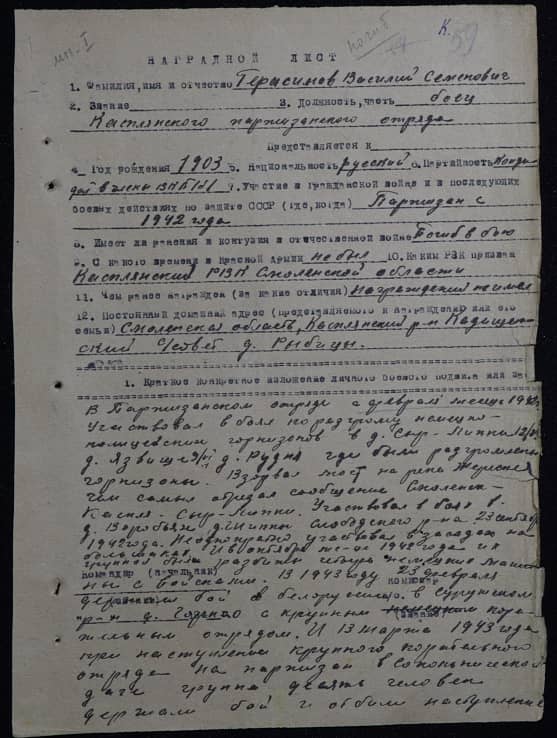 мн. I
погиб
К.
59
НАГРАДНОЙ ЛИСТ
1. Фамилия, имя и отчество Герасимов Василий Семенович
2. Звание 3. Должность, часть боец
Каспянского партизанского отряда
Представляется к
4. Год рождения 1903 5. Национальность русский 6. Партийность Канди
дат в члены ВКП(б) 7. Участие в гражданской войне и в последующих
боевых действиях по защите СССР (где, когда) Партизан с
1942 года
8. Имеет ли ранения и контузии в отечественной войне Погиб в бою
9. С какого времени в Красной Армии не был 10. Каким РВК призван
Каспянский РВК Смоленской области
11. Чем ранее награжден (за какие отличия) Награждений не имел
12. Постоянный домашний адрес (представляемого к награждению или его
семьи) Смоленская область, Каспянский р-н
с/совет д. Рыбицы.
1. Краткое конкретное изложение личного боевого подвига или зас
В Партизанском отряде с февраля месяца 1942
Участвовал в боях по разгрому немецко-
полицейских горнизонов в д. Сыр-Липки
д. Язвище д. Рудня где были разгромлены
горнизоны. Взорвал мост на реке Жереспея
чем самым отрезал сообщение Смоленск-
Каспля-Сыр-Липки. Участвовал в боях в
д. Воробьи Слободского р-на 23 сентября
1942 года. Неоднократно участвовал в засадах на
большаках. И в октябре м-це 1942 года их
группой были разбиты четыре немецкие маши
командир (начальник)
ны с войсками. В 1943 году 23 февраля
комиссар
держали бой в белоруссии в Суражском
р-н д. с крупным немецким кара-
тельным отрядом. И 13 марта 1943 года
при наступлении крупного карательного
отряда на партизан
даче группа десять человек
держали бой и отбили наступление